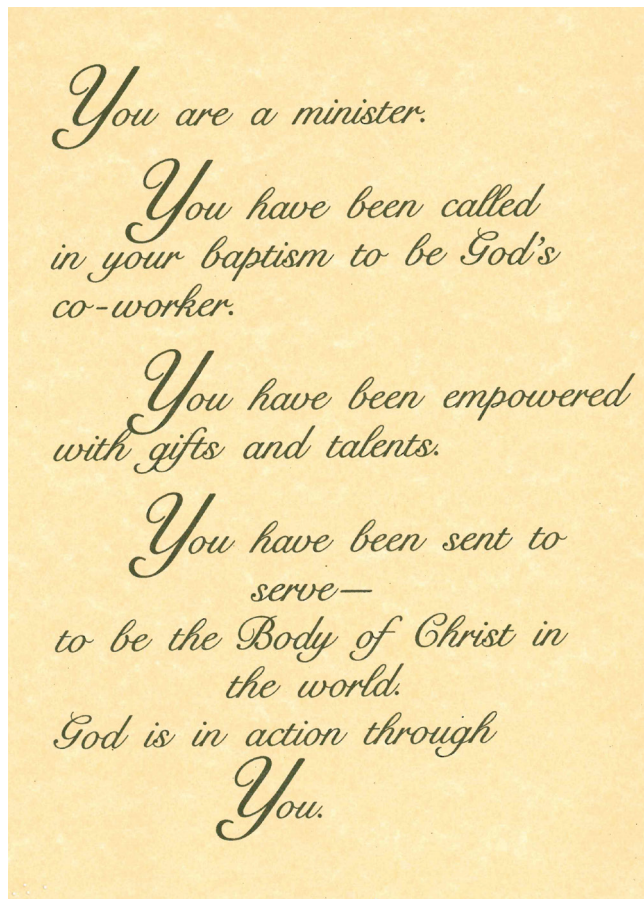 You are a minister.
You have been called
in your baptism to be God's
co-worker.
You have been empowered
with gifts and talents.
You have been sent to
serve—
to be the Body of Christ in
the world.
God is in action through
You.